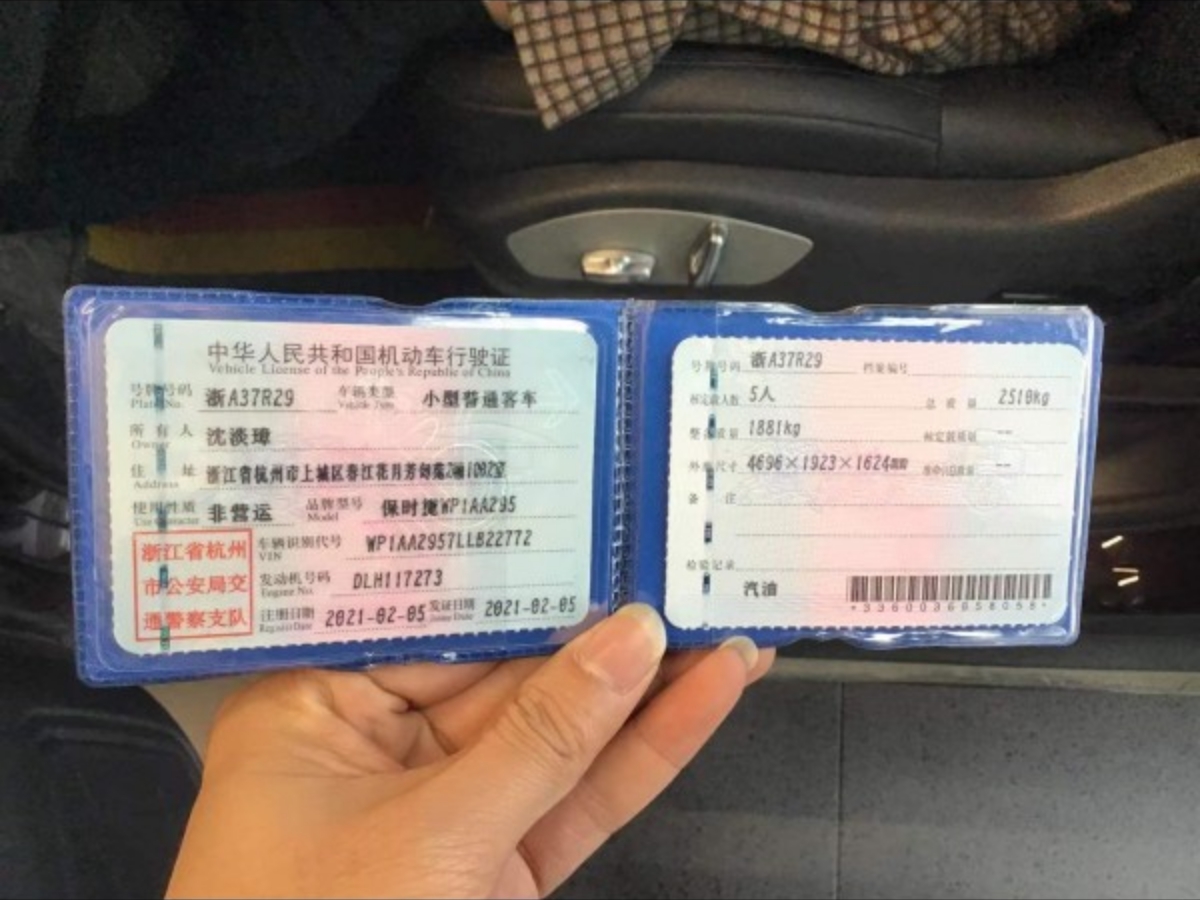 中华人民共和国机动车行驶证
Vehicle License of the People's Republic of China
号牌号码 浙A37R29 车辆类型 小型普通客车
Plate No. Vehicle Type
所有人 沈淡璋
Owner
住址 浙江省杭州市上城区春江花月芳甸苑
Address
使用性质 非营运 品牌型号 保时捷WP1AA295
Use Character Model
浙江省杭州
市公安局交
通警察支队
车辆识别代号 WP1AA2957LLB22772
VIN
发动机号码 DLH117273
Engine No.
注册日期 2021-02-05 发证日期 2021-02-05
Register Date Issue Date
号牌号码 浙A37R29 档案编号
核定载人数 5人 总质量 2510kg
整备质量 1881kg 核定载质量 --
外廓尺寸 4696×1923×1624mm --
备注
检验记录
汽油
*3360036058058*